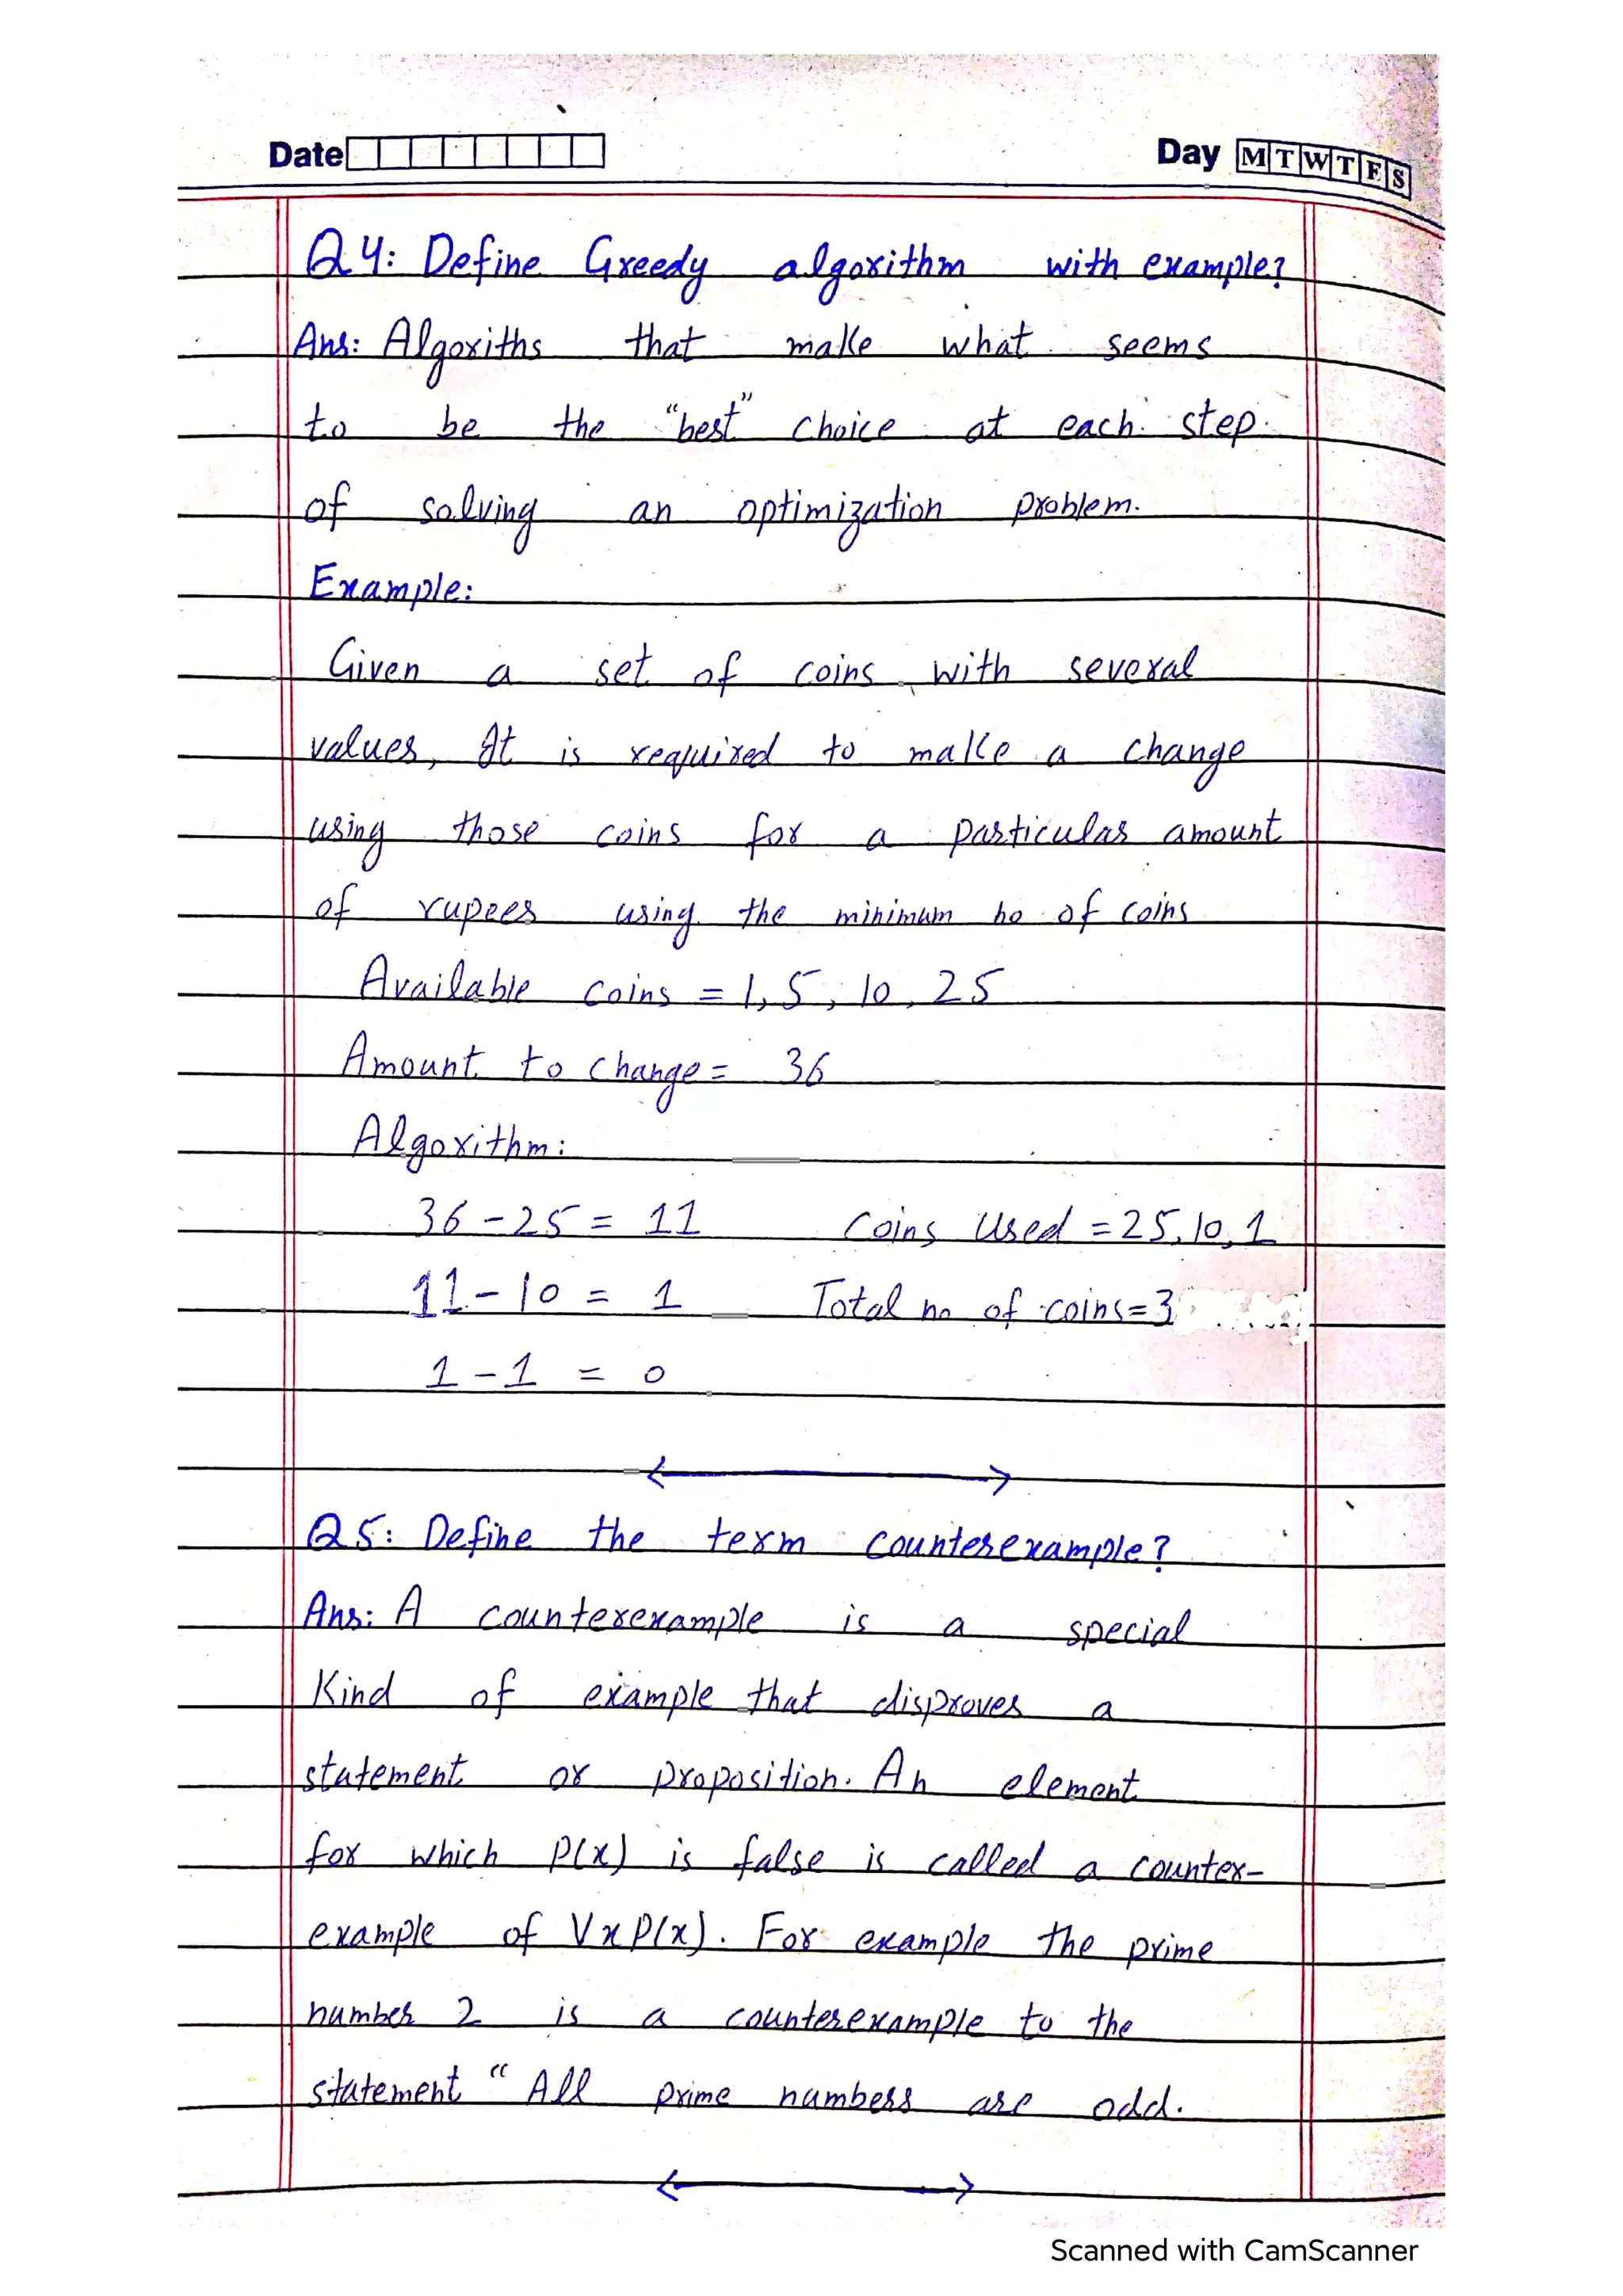 Date Day M T W T F S
Q4: Define Greedy algorithm with example?
Ans: Algoriths that make what seems
to be the "best" choice at each step
of solving an optimization problem.
Example:
Given a set of coins with several
values, It is required to make a change
using those coins for a particular amount
of rupees using the minimum no of coins
Available coins = 1, 5, 10, 25
Amount to change = 36
Algorithm:
36 - 25 = 11 Coins Used = 25, 10, 1
11 - 10 = 1 Total no of coins = 3
1 - 1 = 0
Q5: Define the term counterexample?
Ans: A counterexample is a special
Kind of example that disproves a
statement or proposition. An element
for which P(x) is false is called a counter-
example of ∀x P(x). For example the prime
number 2 is a counterexample to the
statement “ All prime numbers are odd.
Scanned with CamScanner